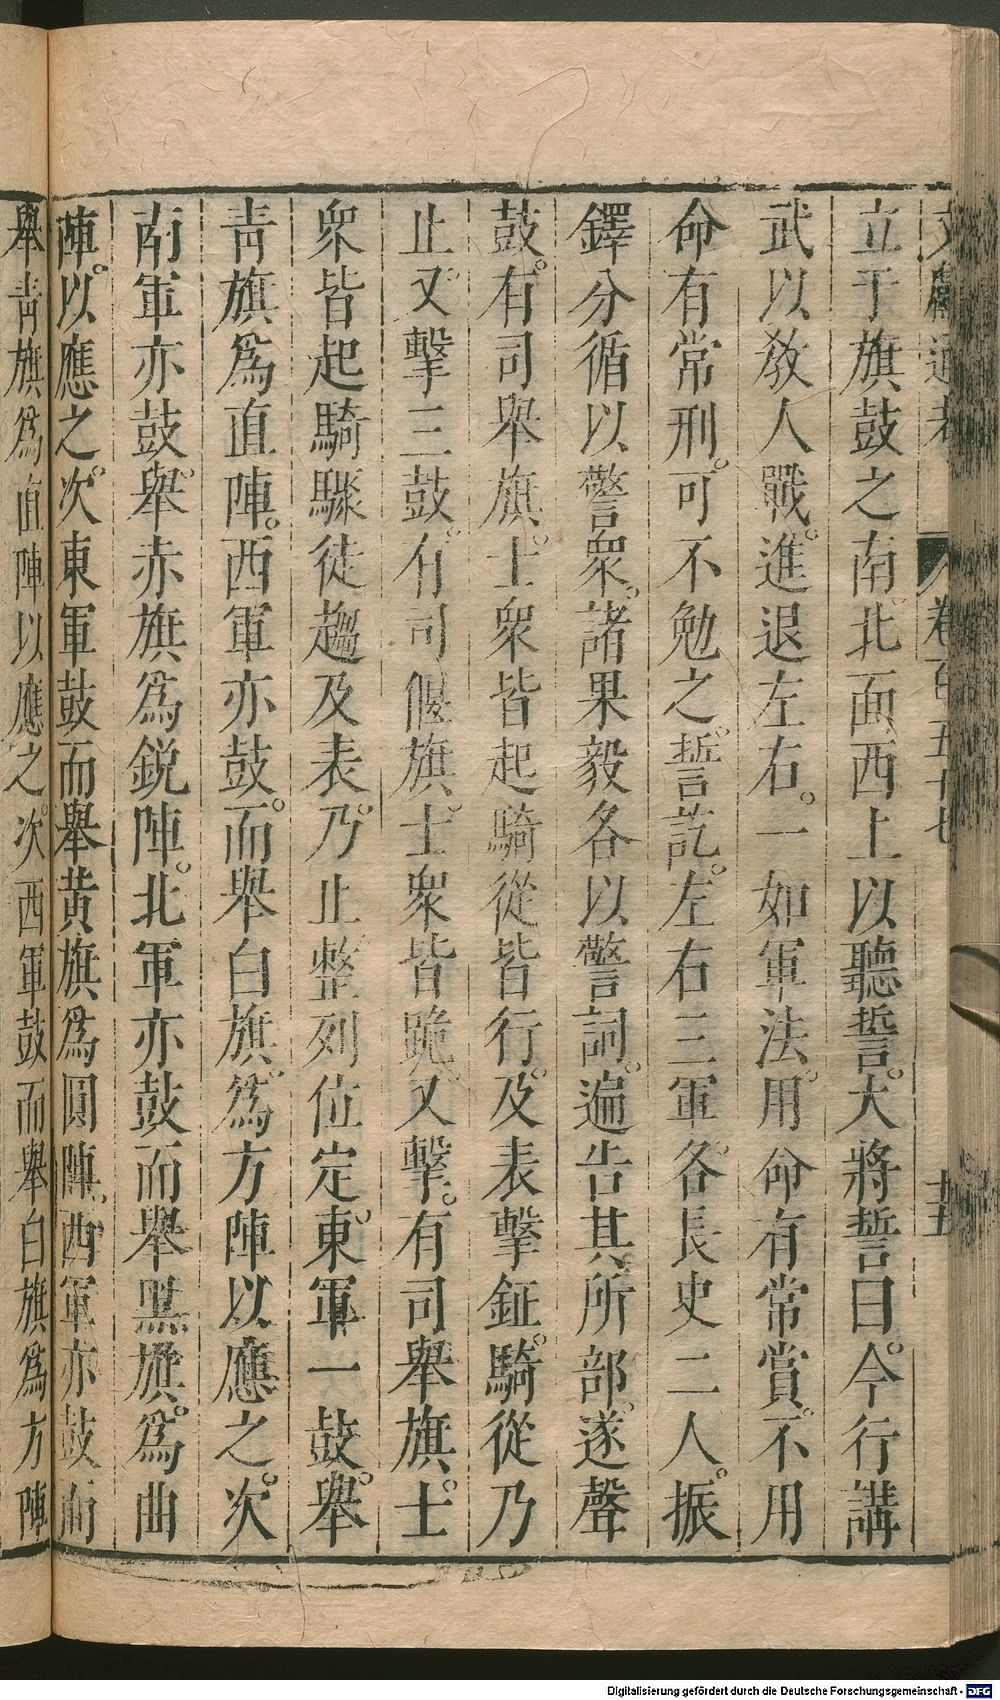 文獻通考 卷百五十七 十五
立于旗鼓之南北面西上以聽誓。大將誓曰。今行講
武以敎人戰。進退左右。一如軍法。用命有常賞。不用
命有常刑。可不勉之。誓訖。左右三軍。各長史二人。振
鐸分循以警衆。諸果毅各以警詞。遍告其所部。遂聲
鼓。有司舉旗。士衆皆起騎從皆行。及表擊鉦。騎從乃
止。又擊三鼓。有司偃旗。士衆皆跪。又擊。有司舉旗。士
衆皆起騎驟徒趨及表。乃止整列位定。東軍一鼓。舉
靑旗爲直陣。西軍亦鼓。而舉白旗。爲方陣以應之。次
南軍亦鼓。舉赤旗爲銳陣。北軍亦鼓而舉黑旗。爲曲
陣。以應之。次東軍鼓而舉黃旗爲圓陣。西軍亦鼓而
舉靑旗爲直陣以應之。次西軍鼓而舉白旗爲方陣
Digitalisierung gefördert durch die Deutsche Forschungsgemeinschaft - DFG